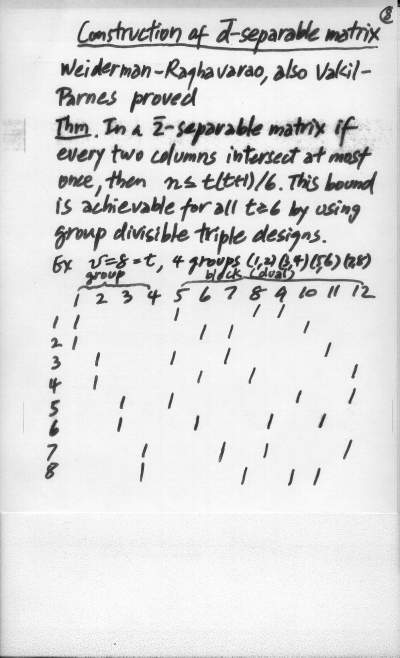 8
Construction of d̄-separable matrix
Weiderman-Raghavarao, also Vakil-
Parnes proved
Thm. In a 2̄-separable matrix if
every two columns intersect at most
once, then n ≤ t(t+1)/6. This bound
is achievable for all t≥6 by using
group divisible triple designs.
Ex v=8=t, 4 groups (1,2)(3,4)(5,6)(7,8)
group block (dual)
1 2 3 4 5 6 7 8 9 10 11 12
1 1 1 1 1
2 1 1 1 1
3 1 1 1 1
4 1 1 1 1
5 1 1 1 1
6 1 1 1 1
7 1 1 1 1
8 1 1 1 1